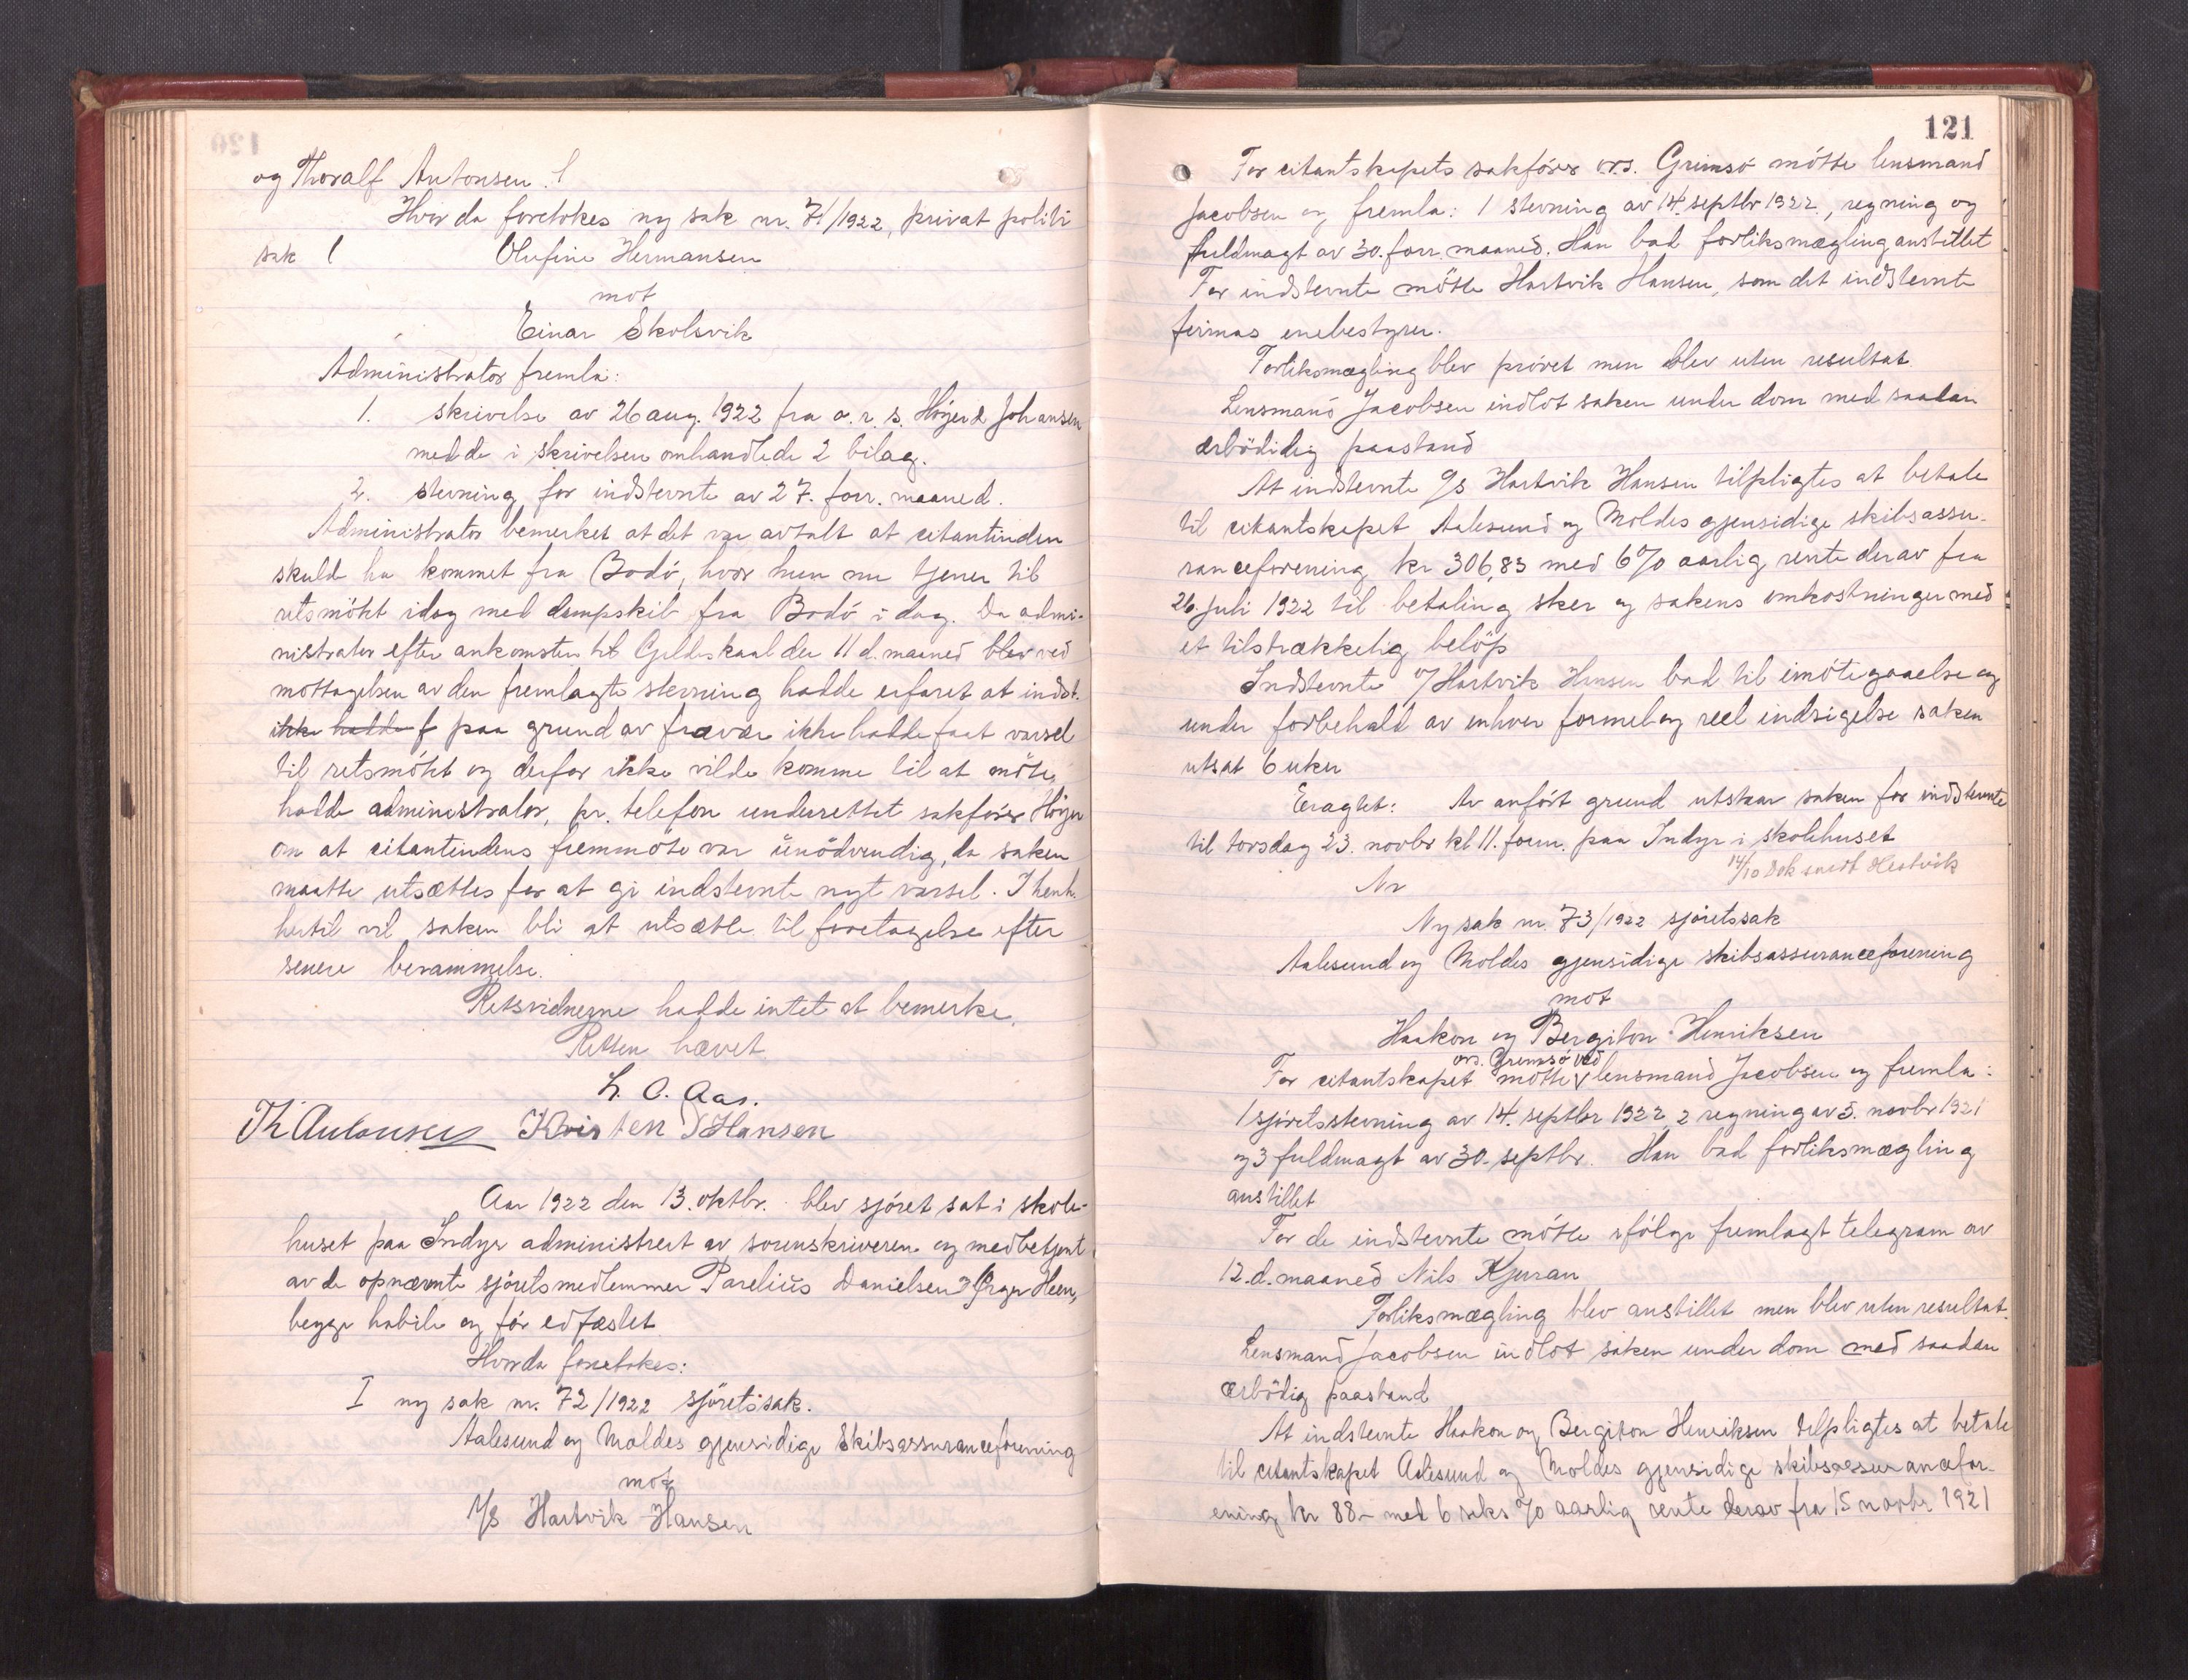 og Thoralf Antonsen.
Hvor da foretokes ny sak nr. 71/1922, privat politi
sak Olufine Hermansen
mot
Einar Skolsvik
Administrator fremla:
1. skrivelse av 26 aug. 1922 fra o.r.s. Höyer & Johansen
med de i skrivelsen omhandlede 2 bilag.
2. stevning for indstevnte av 27. forr. maaned.
Administrator bemerket at det var avtalt at citantinden
skuld ha kommet fra Bodö, hvor hun nu tjener til
retsmötet idag med dampskib fra Bodö i dag. Da admi-
nistrator efter ankomsten til Gildeskaal den 11 d. maaned blev ved
mottagelsen av den fremlagte stevning hadde erfaret at indst.
ikke hadde f paa grund av fravær ikke hadde faat varsel
til retsmötet og derfor ikke vilde komme til at möte,
hadde administrator, pr. telefon underrettet sakförer Höyer
om at citantindens fremmöte var unödvendig, da saken
maatte utsættes for at gi indstevnte nyt varsel. I henh.
hertil vil saken bli at utsætte til foretagelse efter
senere berammelse.
Retsvidnerne hadde intet at bemerke.
Retten hævet.
L. O. Aas.
Th Antonsen Kristen Hansen
Aar 1922 den 13. oktbr. blev sjöret sat i skole-
huset paa Indyr administrert av sorenskriveren og medbetjent
av de opnævnte sjöretsmedlemmer Parelius Danielsen og Heen,
begge habile og för edfæstet
Hvorda foretokes:
I ny sak nr. 72/1922 sjöretssak.
Aalesund og Moldes gjensidige Skibsassuranceforening
mot
I/S Hartvik Hansen
121
For citantskapets sakförer o.r.s. Grimsö mötte lensmand
Jacobsen og fremla: 1 stevning av 14. septbr 1922., regning og
fuldmagt av 30. forr. maaned. Han bad forliksmægling anstillet
For indstevnte mötte Hartvik Hansen, som det indstevnte
firmas enebestyrer.
Forliksmægling blev prövet men blev uten resultat.
Lensmand Jacobsen indlot saken under dom med saadan
ærbödidig paastand
At indstevnte I/S Hartvik Hansen tilpligtes at betale
til citantskapet Aalesund og Moldes gjensidige skibsassu-
ranceforening kr 306,83 med 6% aarlig rente derav fra
26. juli 1922 til betaling sker og sakens omkostninger med
et tilstrækkelig belöp
Indstevnte Hartvik Hansen bad til imötegaaelse og
under forbehold av enhver formel og reel indsigelse saken
utsat 6 uker
Eragtet: Av anfört grund utstaar saken for indstevnte
til torsdag 23. novbr kl 11. form. paa Indyr i skolehuset
14/10 Dok sendt Hestvik
Nr
Ny sak nr. 73/1922 sjöretssak
Aalesund og Moldes gjensidige skibsassuranceforening
mot
Haakon og Bergiton Henriksen
ors. Grimsö ved
For citantskapet mötte lensmand Jacobsen og fremla:
1 sjöretsstevning av 14. septbr 1922 2 regning av 5. novbr 1921
og 3 fuldmagt av 30. septbr. Han bad forliksmægling
anstillet
For de indstevnte mötte ifölge fremlagt telegram av
12. d. maaned Nils Kjeran
Forliksmægling blev anstillet men blev uten resultat.
Lensmand Jacobsen indlot saken under dom med saadan
ærbödig paastand
At indstevnte Haakon og Bergiton Henriksen tilpligtes at betale
til citantskapet Aalesund og Moldes gjensidige skibsassurancefor-
ening kr 88.- med 6 seks % aarlig rente derav fra 15 novbr. 1921